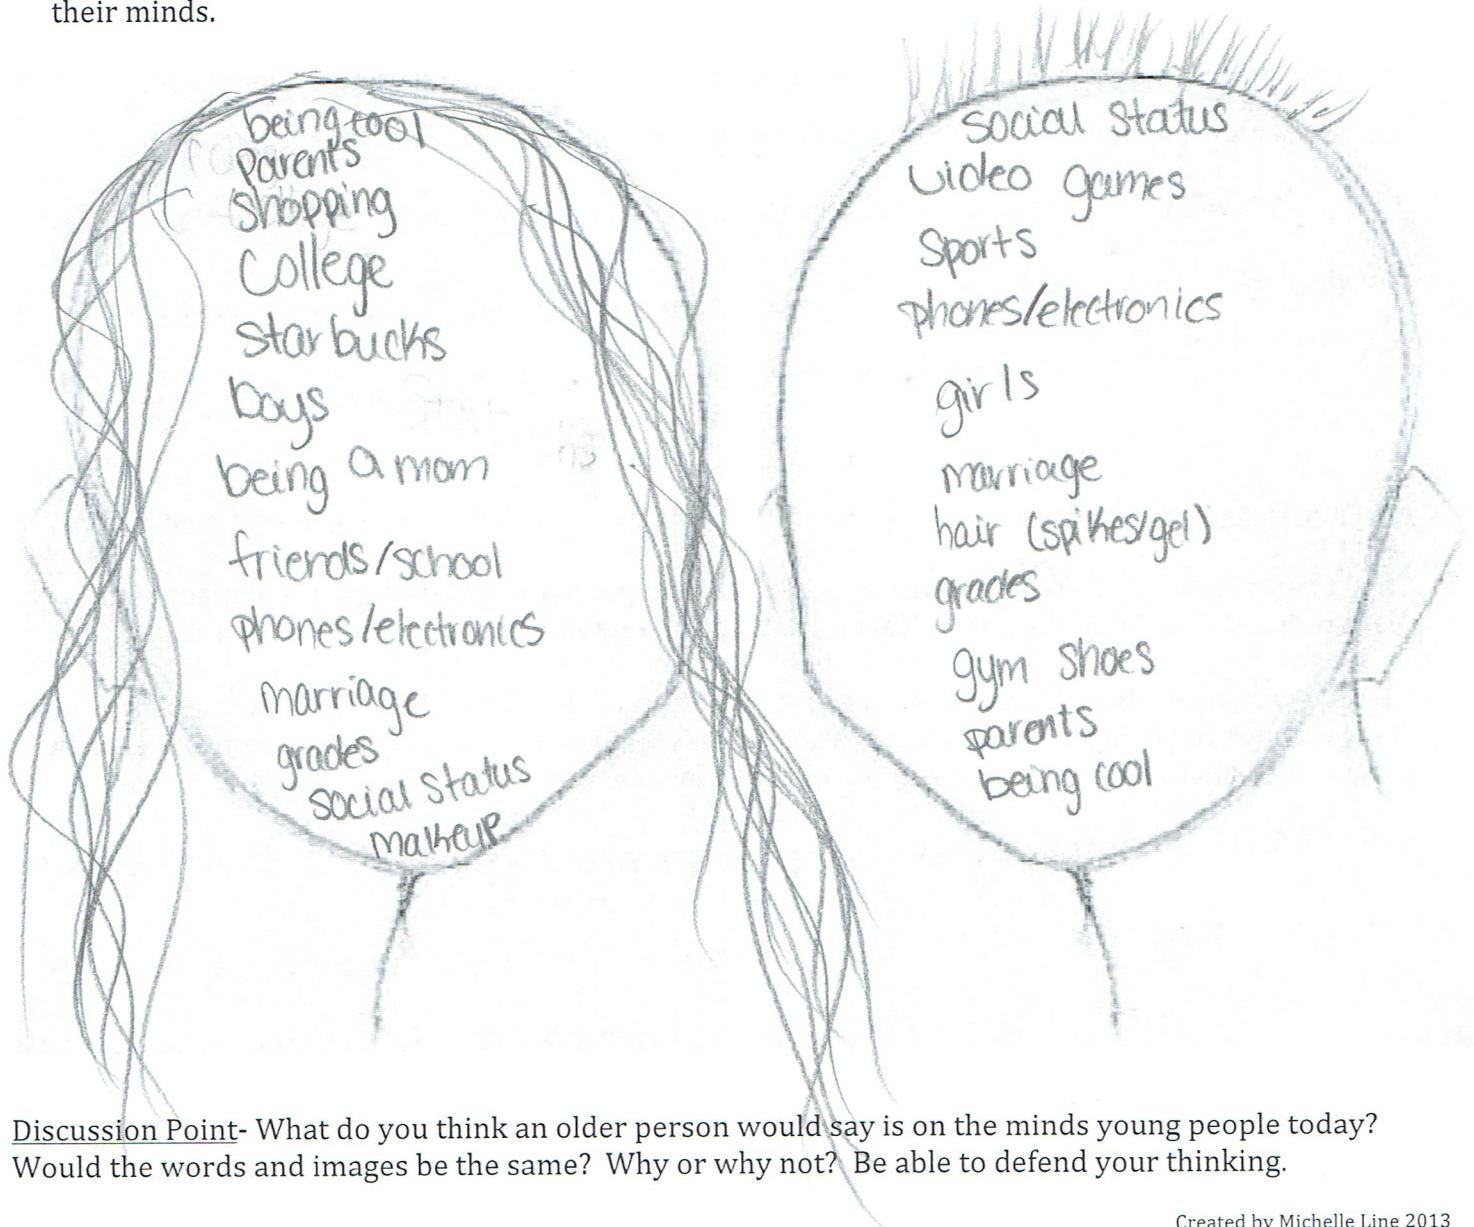 their minds.
being cool
Parents
shopping
College
starbucks
boys
being a mom
friends/school
phones/electronics
marriage
grades
social status
makeup
social status
video games
Sports
phones/electronics
girls
marriage
hair (spikes/gel)
grades
gym shoes
parents
being cool
Discussion Point- What do you think an older person would say is on the minds young people today?
Would the words and images be the same?  Why or why not?  Be able to defend your thinking.
Created by Michelle Line 2013